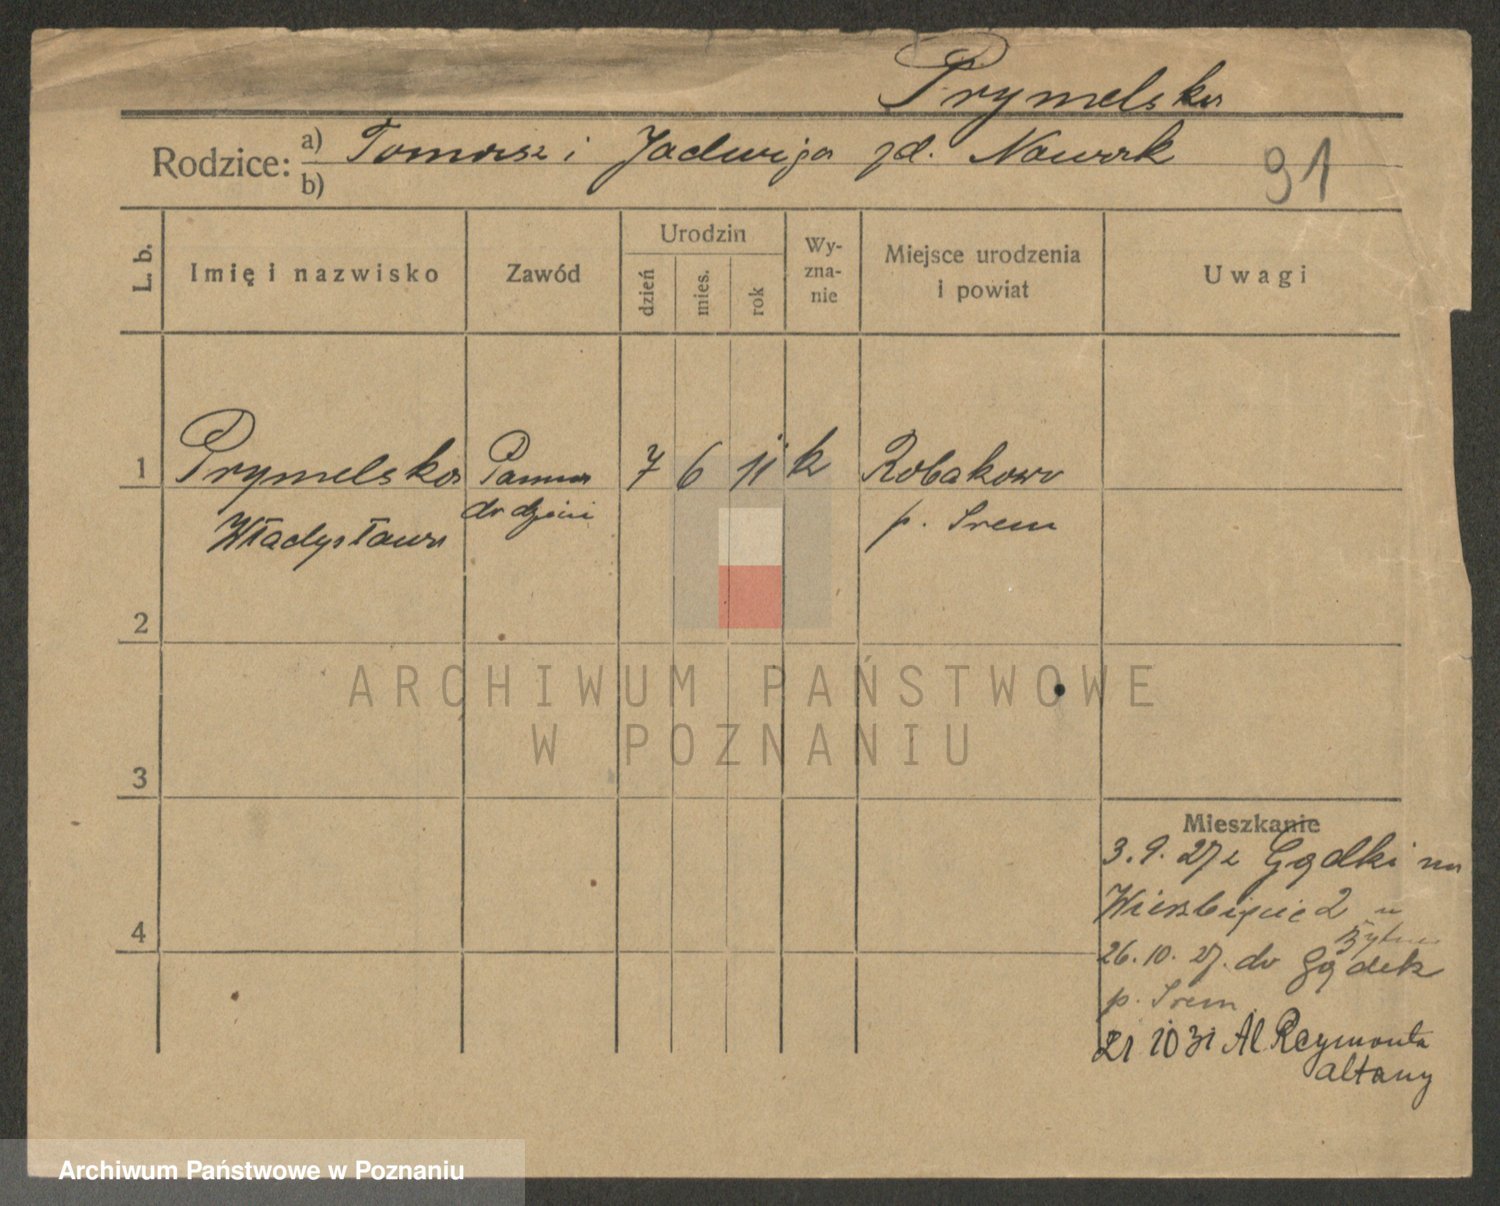 Prymelska
Rodzice: a) Tomasz i Jadwiga zd. Nowak
b)
91
L. b.
Imię i nazwisko
Zawód
Urodzin
dzień
mies.
rok
Wy-
zna-
nie
Miejsce urodzenia
i powiat
Uwagi
1 Prymelska Panna 7 6 11 k Robakowo
Władysława do dzieci p. Srem
2
3
4
ARCHIWUM PAŃSTWOWE
W POZNANIU
Mieszkanie
3. 9. 27 z Gądki na
Wierzbięcic 2 u
26. 10. 27. do Gądek
p. Srem
21 10 31 Al Reymonta
altany
Archiwum Państwowe w Poznaniu